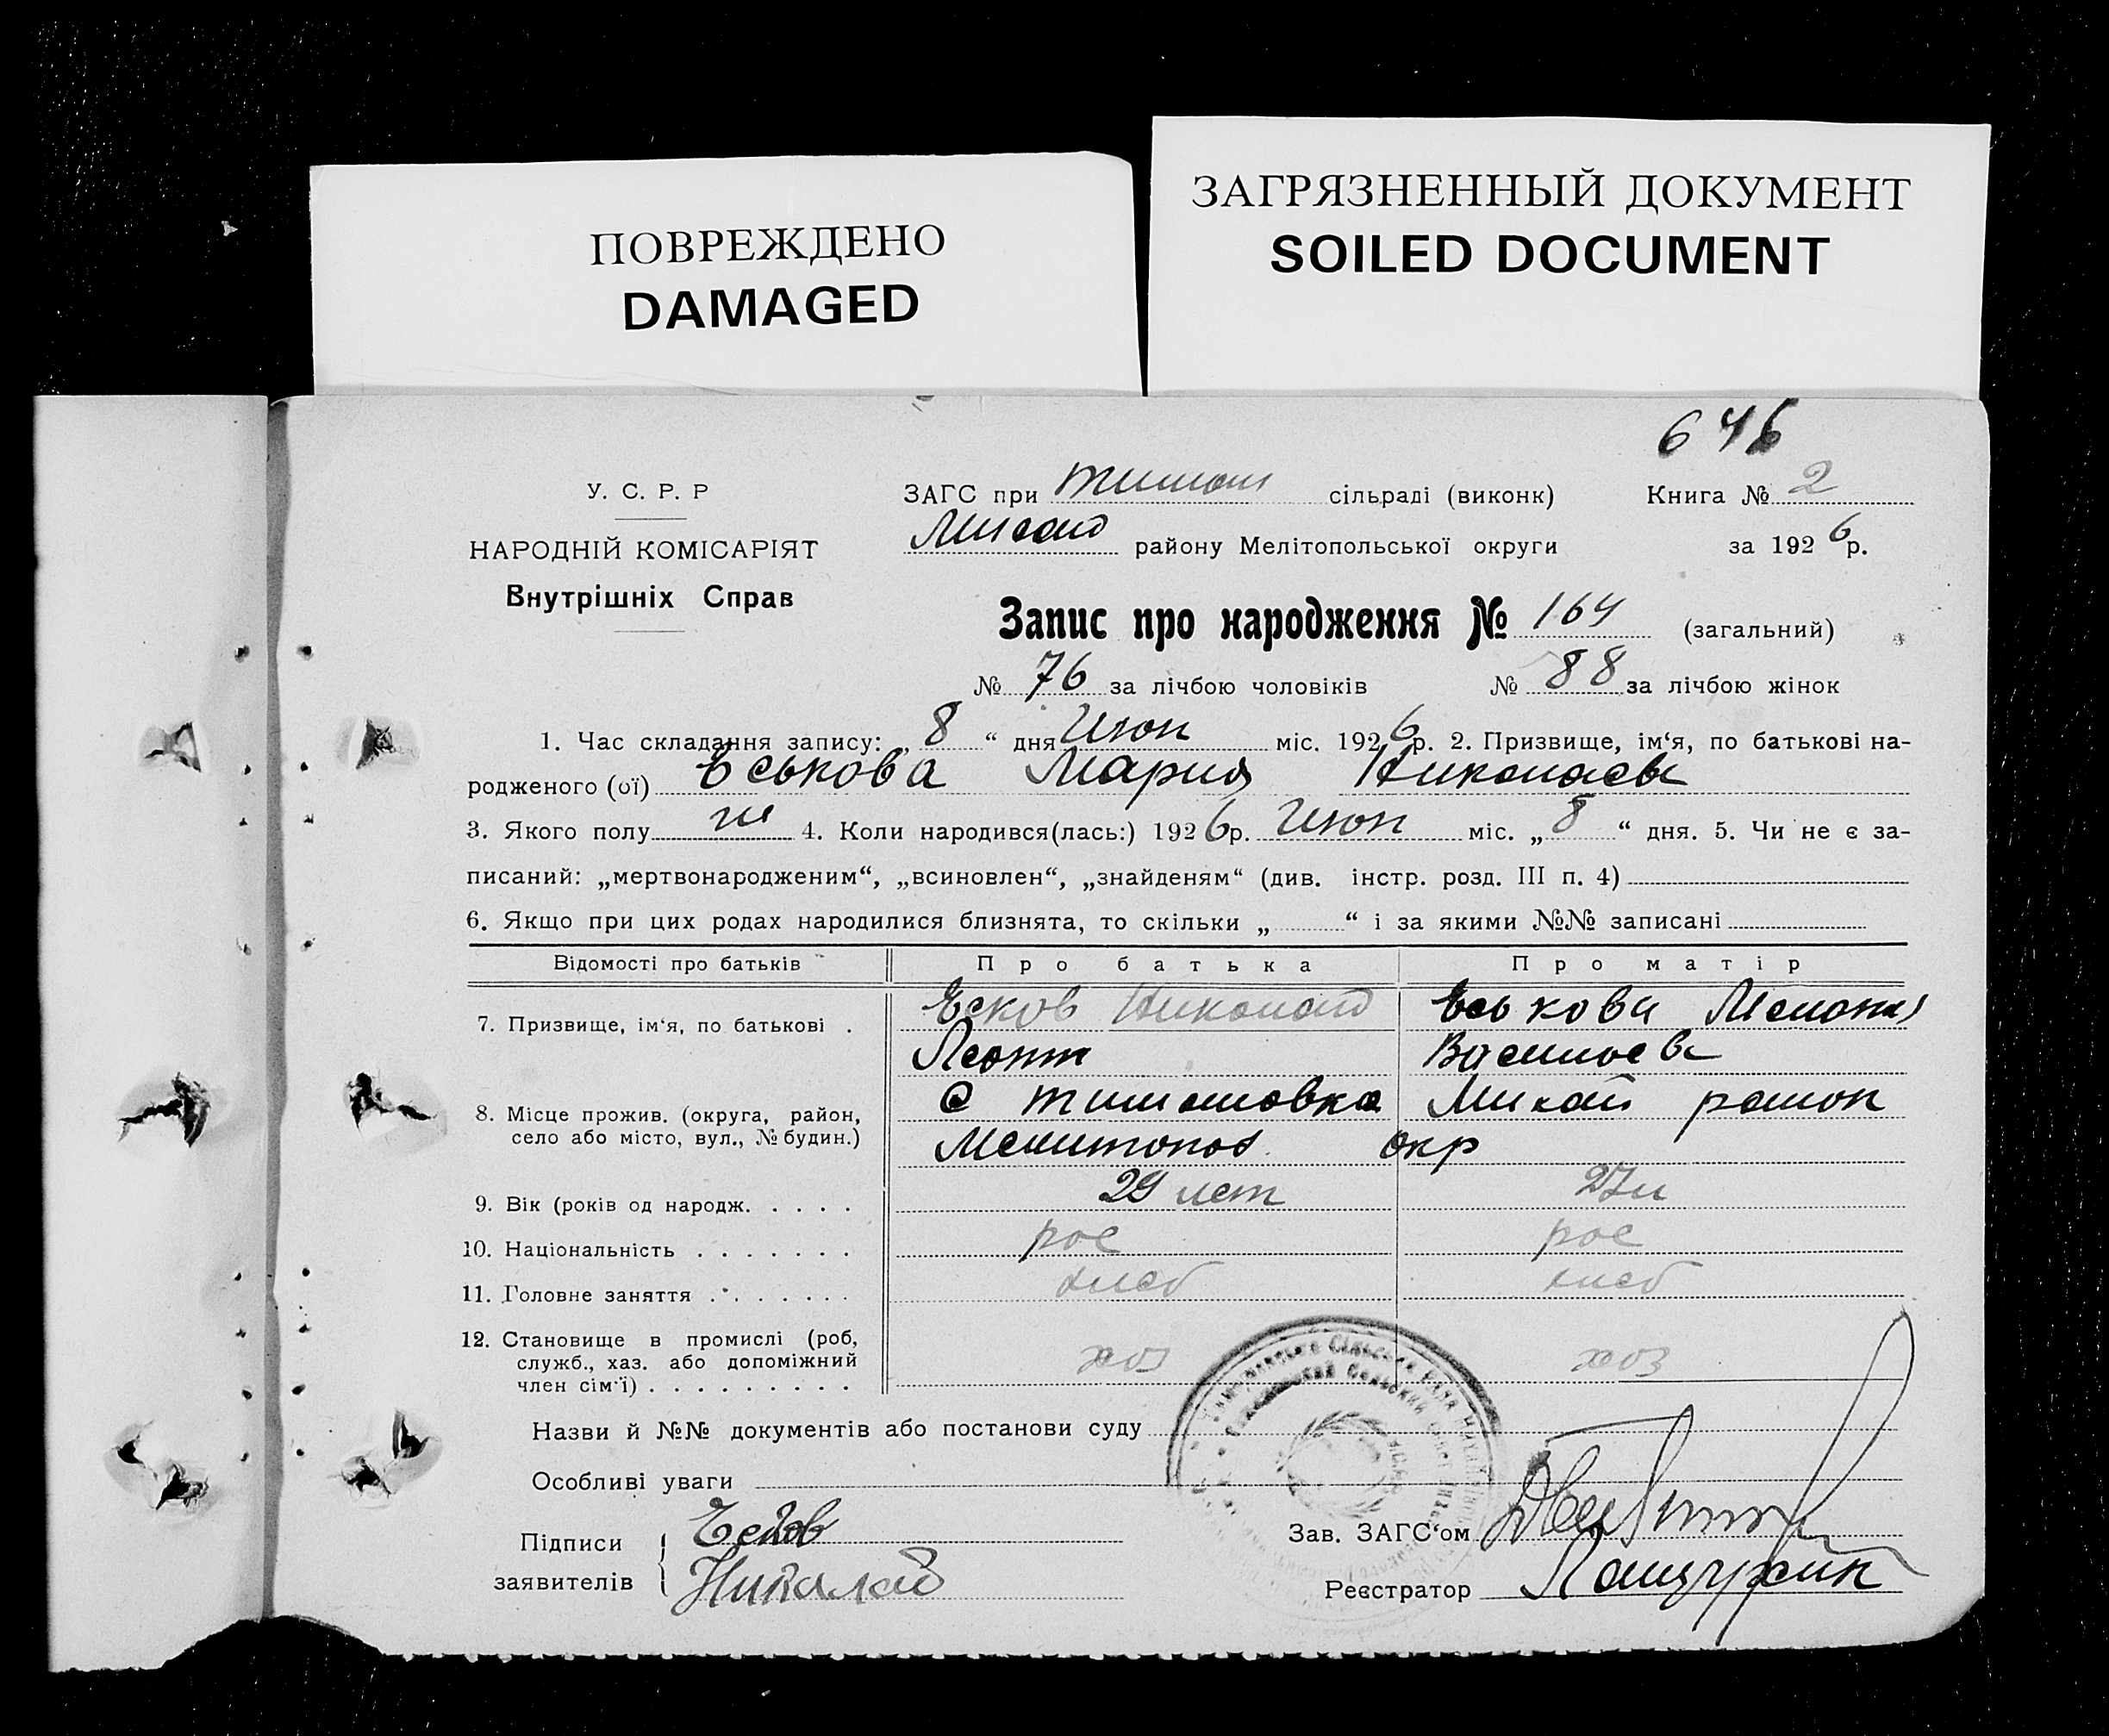 ПОВРЕЖДЕНО
DAMAGED
ЗАГРЯЗНЕННЫЙ ДОКУМЕНТ
SOILED DOCUMENT
646
У. С. Р. Р
НАРОДНІЙ КОМІСАРІЯТ
Внутрішніх Справ
ЗАГС при тимош сільраді (виконк) Книга № 2
району Мелітопольської округи за 1926р.
Запис про народження № 164 (загальний)
№ 76 за лічбою чоловіків № 88 за лічбою жінок
1. Час складання запису: „ 8 “ дня Июн міс. 1926р. 2. Призвище, ім‘я, по батькові на-
родженого (ої) Еськова Мария Николаев
3. Якого полу ж 4. Коли народився(лась:) 1926р. Июн міс. „ 8 “ дня. 5. Чи не є за-
писаний: „мертвонародженим“, „всиновлен“, „знайденям“ (див. інстр. розд. III п. 4)
6. Якщо при цих родах народилися близнята, то скільки „ “ і за якими №№ записані
Відомості про батьків Про батька Про матір
7. Призвище, ім‘я, по батькові . Есков Николай Еськова
Леонт Васильев
8. Місце прожив. (округа, район, С тимошовка район
село або місто, вул., № будин.) Мелитопол окр
9. Вік (років од народж. . . . . 29 лет 27л
10. Національність . . . . . . . рос рос
11. Головне заняття . . . . . . . хлеб хлеб
12. Становище в промислі (роб,
служб., хаз. або допоміжний хоз хоз
член сім‘ї) . . . . . . . . .
Назви й №№ документів або постанови суду
Особливі уваги
Підписи Есков
заявителів Николай
Зав. ЗАГС‘ом
Реєстратор